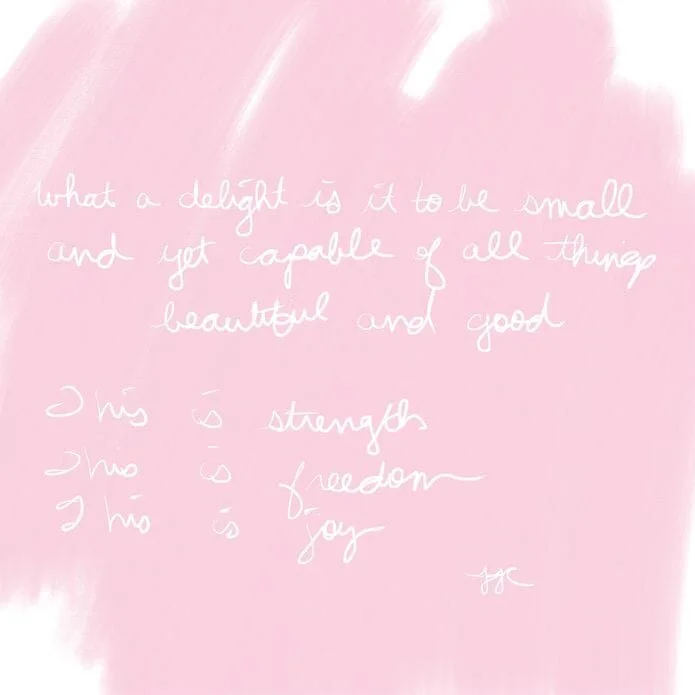 what a delight is it to be small
and yet capable of all things
beautiful and good
This is strength
This is freedom
This is joy